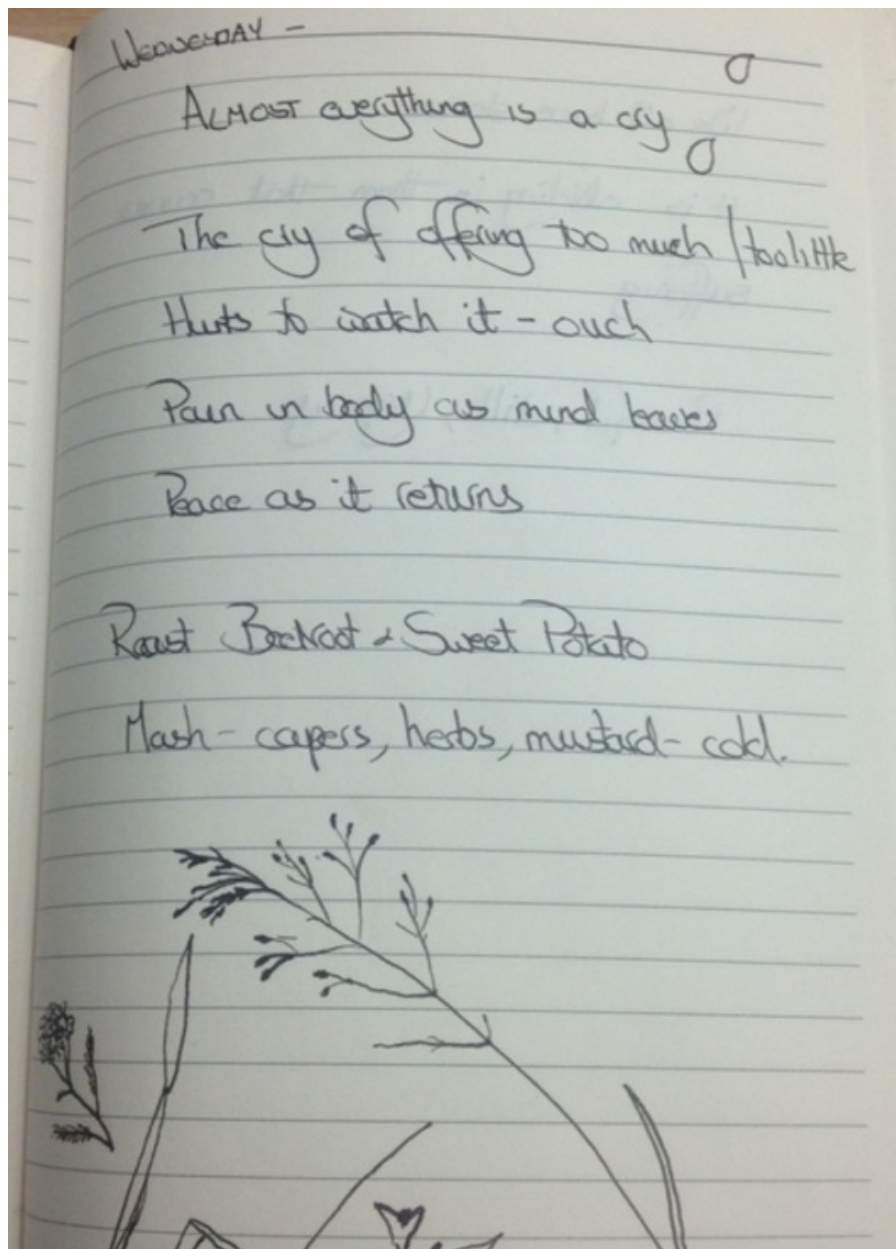 WEDNESDAY -
ALMOST everything is a cry
The cry of offering too much / too little
Hurts to watch it - ouch
Pain in body as mind leaves
Peace as it returns
Roast Beetroot & Sweet Potato
Mash - capers, herbs, mustard - cold.